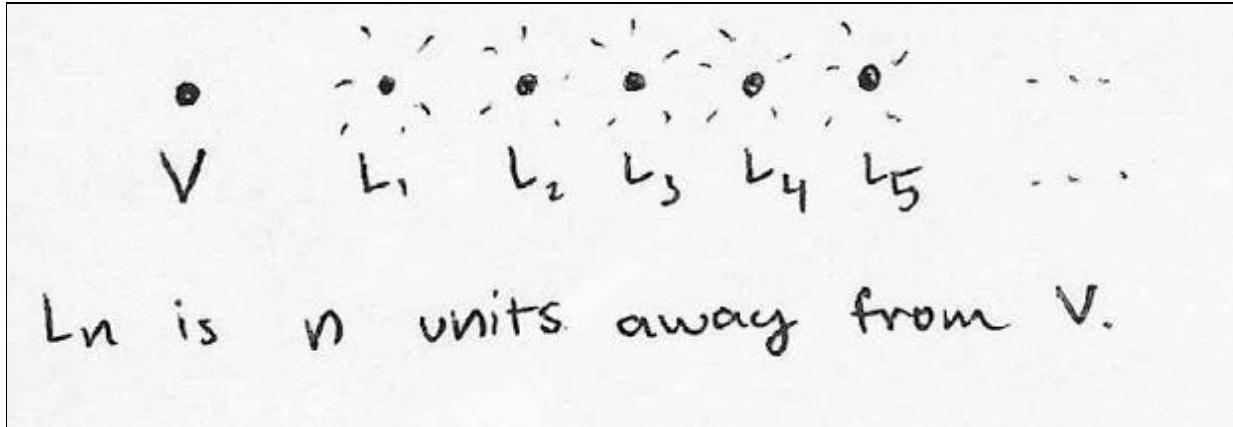 V L₁ L₂ L₃ L₄ L₅ .....
Ln is n units away from V.